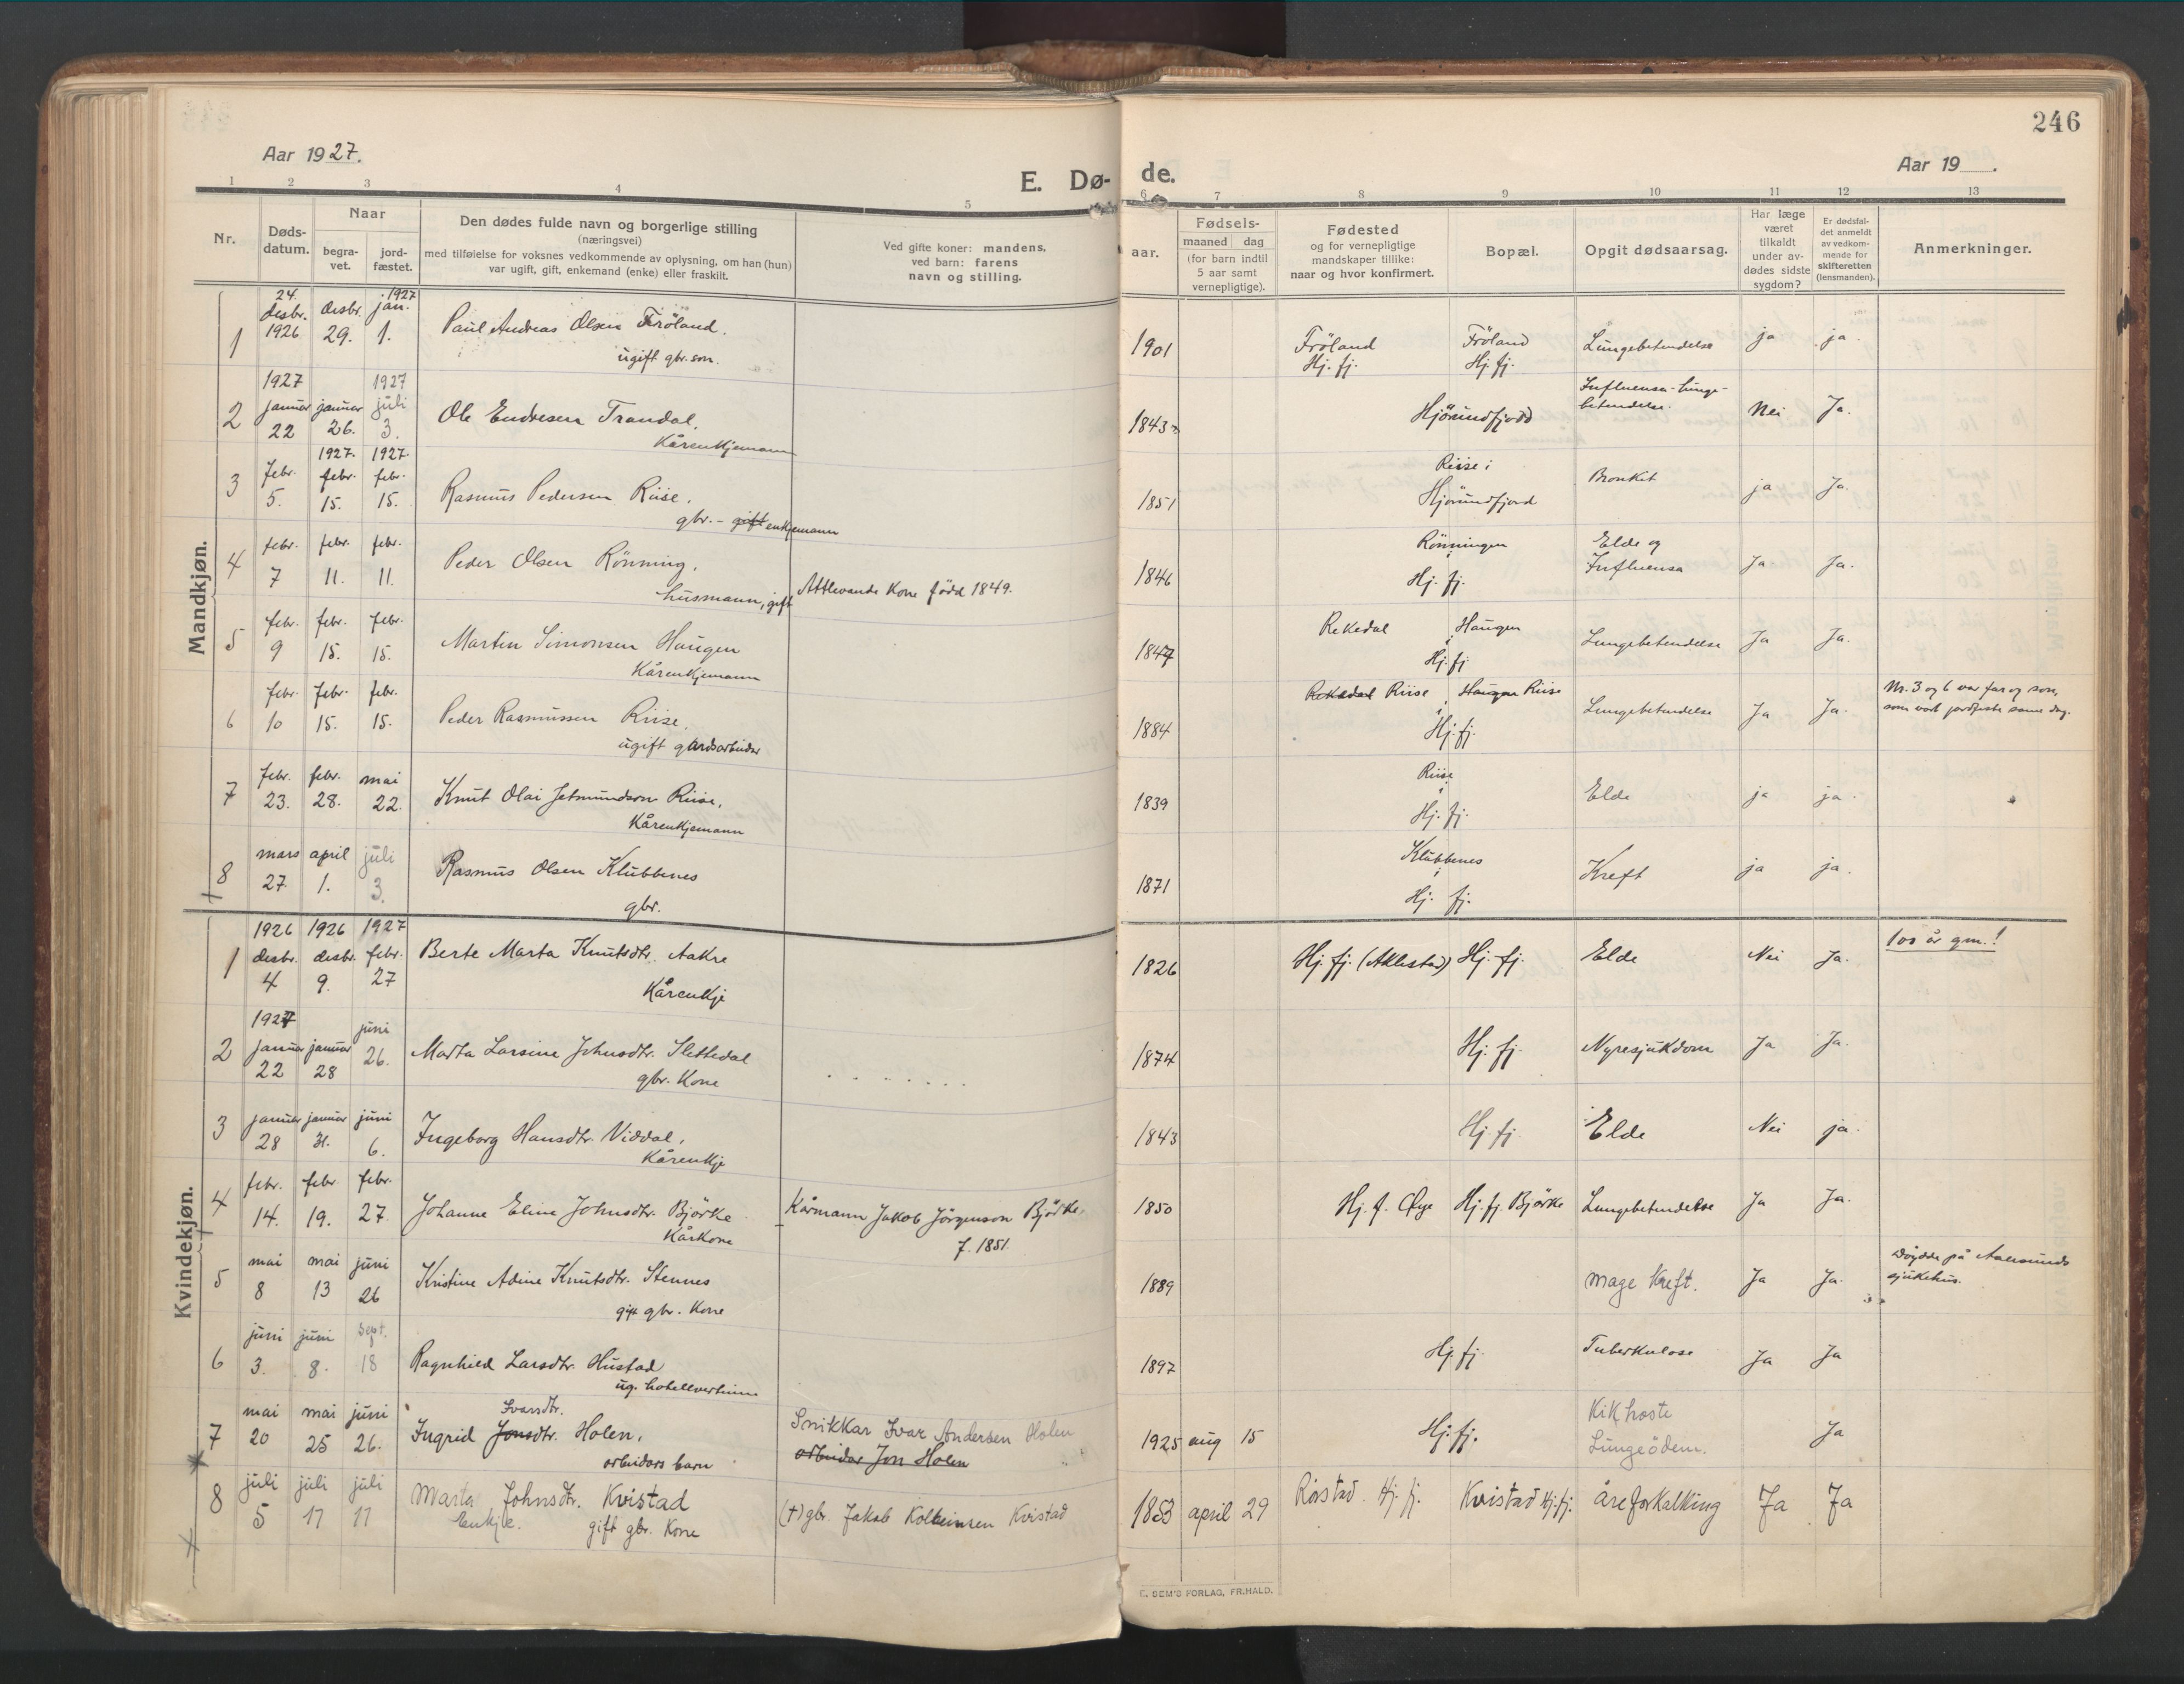 246
Aar 1927.
Aar 19
E. Dø-
de.
1 2 3 4 5 6 7 8 9 10 11 12 13
Nr.
Døds-
datum.
Naar
begra-
vet.
jord-
fæstet.
Den dødes fulde navn og borgerlige stilling
(næringsvei)
med tilføielse for voksnes vedkommende av oplysning, om han (hun)
var ugift, gift, enkemand (enke) eller fraskilt.
Ved gifte koner: mandens,
ved barn: farens
navn og stilling.
aar.
Fødsels-
maaned dag
(for barn indtil
5 aar samt
vernepligtige).
Fødested
og for vernepligtige
mandskaper tillike:
naar og hvor konfirmert.
Bopæl.
Opgit dødsaarsag.
Har læge
været
tilkaldt
under av-
dødes sidste
sygdom?
Er dødsfal-
det anmeldt
av vedkom-
mende for
skifteretten
(lensmanden).
Anmerkninger.
Mandkjøn.
1 24. desbr. 1926 desbr. 29. 1927 jan. 1. Paul Andreas Olsen Fröland. 1901 Fröland Fröland Lungebetendelse ja ja.
ugift gbr. son. Hj. fj. Hj. fj.
2 1927 januar 22 januar 26. 1927 juli 3. Ole Endresen Trandal. 1843 Hjörundfjord Influensa-Lunge-
betendelse. Nei Ja.
Kårenkjemann
3 febr. 5. 1927. febr. 15. 1927. febr. 15. Rasmus Pedersen Riise. 1851 Riise i
Hjörundfjord Bronkit ja Ja.
gbr. - gift enkjemann
4 febr. 7 febr. 11. febr. 11. Peder Olsen Rönning. 1846 Rönningen
Hj. fj. Elde og
Influensa Ja Ja.
husmann, gift Attlevande Kone född 1849.
5 febr. 9 febr. 15. febr. 15. Martin Simonsen Haugen 1847 Rekedal Haugen
i
Hj. fj Lungebetendelse Ja Ja.
Kårenkjemann
6 febr. 10 febr. 15. febr. 15. Peder Rasmussen Riise. 1884 Rekedal Riise Haugen Riise
i
Hj. fj. Lungebetendelse Ja Ja. Nr. 3 og 6 var far og son,
som vart jordfeste same dag.
ugift gardsarbeidar
7 febr. 23. febr. 28. mai 22. Knut Olai Jetmundson Riise. 1839 Riise
i
Hj. fj. Elde ja ja.
Kårenkjemann
8 mars 27. april 1. juli 3. Rasmus Olsen Klubbenes 1871 Klubbenes
i
Hj. fj. Kreft ja ja.
gbr.
Kvindekjøn.
1 1926 desbr. 4 1926 desbr. 9. 1927 febr. 27 Berte Marta Knutsdtr. Aakre 1826 Hj. fj. (Aklestad) Hj. fj. Elde Nei Ja. 100 år gm.!
Kårenkje
2 1927 januar 22 januar 28 juni 26. Marta Larsine Johnsdtr. Slettedal 1874 Hj. fj. Nyresjukdom Ja Ja.
gbr. Kone
3 januar 28 januar 31. juni 6. Ingeborg Hansdtr. Viddal. 1843 Hj. fj. Elde Nei ja.
Kårenkje
4 febr. 14. febr. 19. febr. 27. Johanne Eline Johnsdtr. Björke Kårmann Jakob Jörgenson Björke, 1850 Hj. f. Öye Hj. fj. Björke Lungebetendelse Ja Ja.
Kårkone f. 1851.
5 mai 8 mai 13 juni 26 Kristine Adine Knutsdtr. Stennes 1889 mage kreft. Ja Ja. Döydde på Aalesunds
sjukehus.
gift gbr. Kone
6 juni 3. juni 8. sept. 18 Ragnhild Larsdtr. Hustad 1897 Hj. fj. Tuberkulose Ja Ja
ug. hotellvertinne
7 mai 20 mai 25 juni 26. Ivarsdtr.
Ingrid Jonsdtr. Holen. Snikkar Ivar Andersen Holen
arbeidar Jon Holen 1925 aug 15 Hj. fj. Kikhoste
Lungeödem. Ja
arbeidars barn
8 juli 5 juli 17 juli 17 Marta Johnsdtr. Kvistad (†) gbr. Jakob Kolbeinsen Kvistad 1853 april 29 Rörstad. Hj. fj. Kvistad Hj. fj. åreforkalking Ja Ja
Enkje. gift gbr. Kone
E. SEM'S FORLAG, FR.HALD.